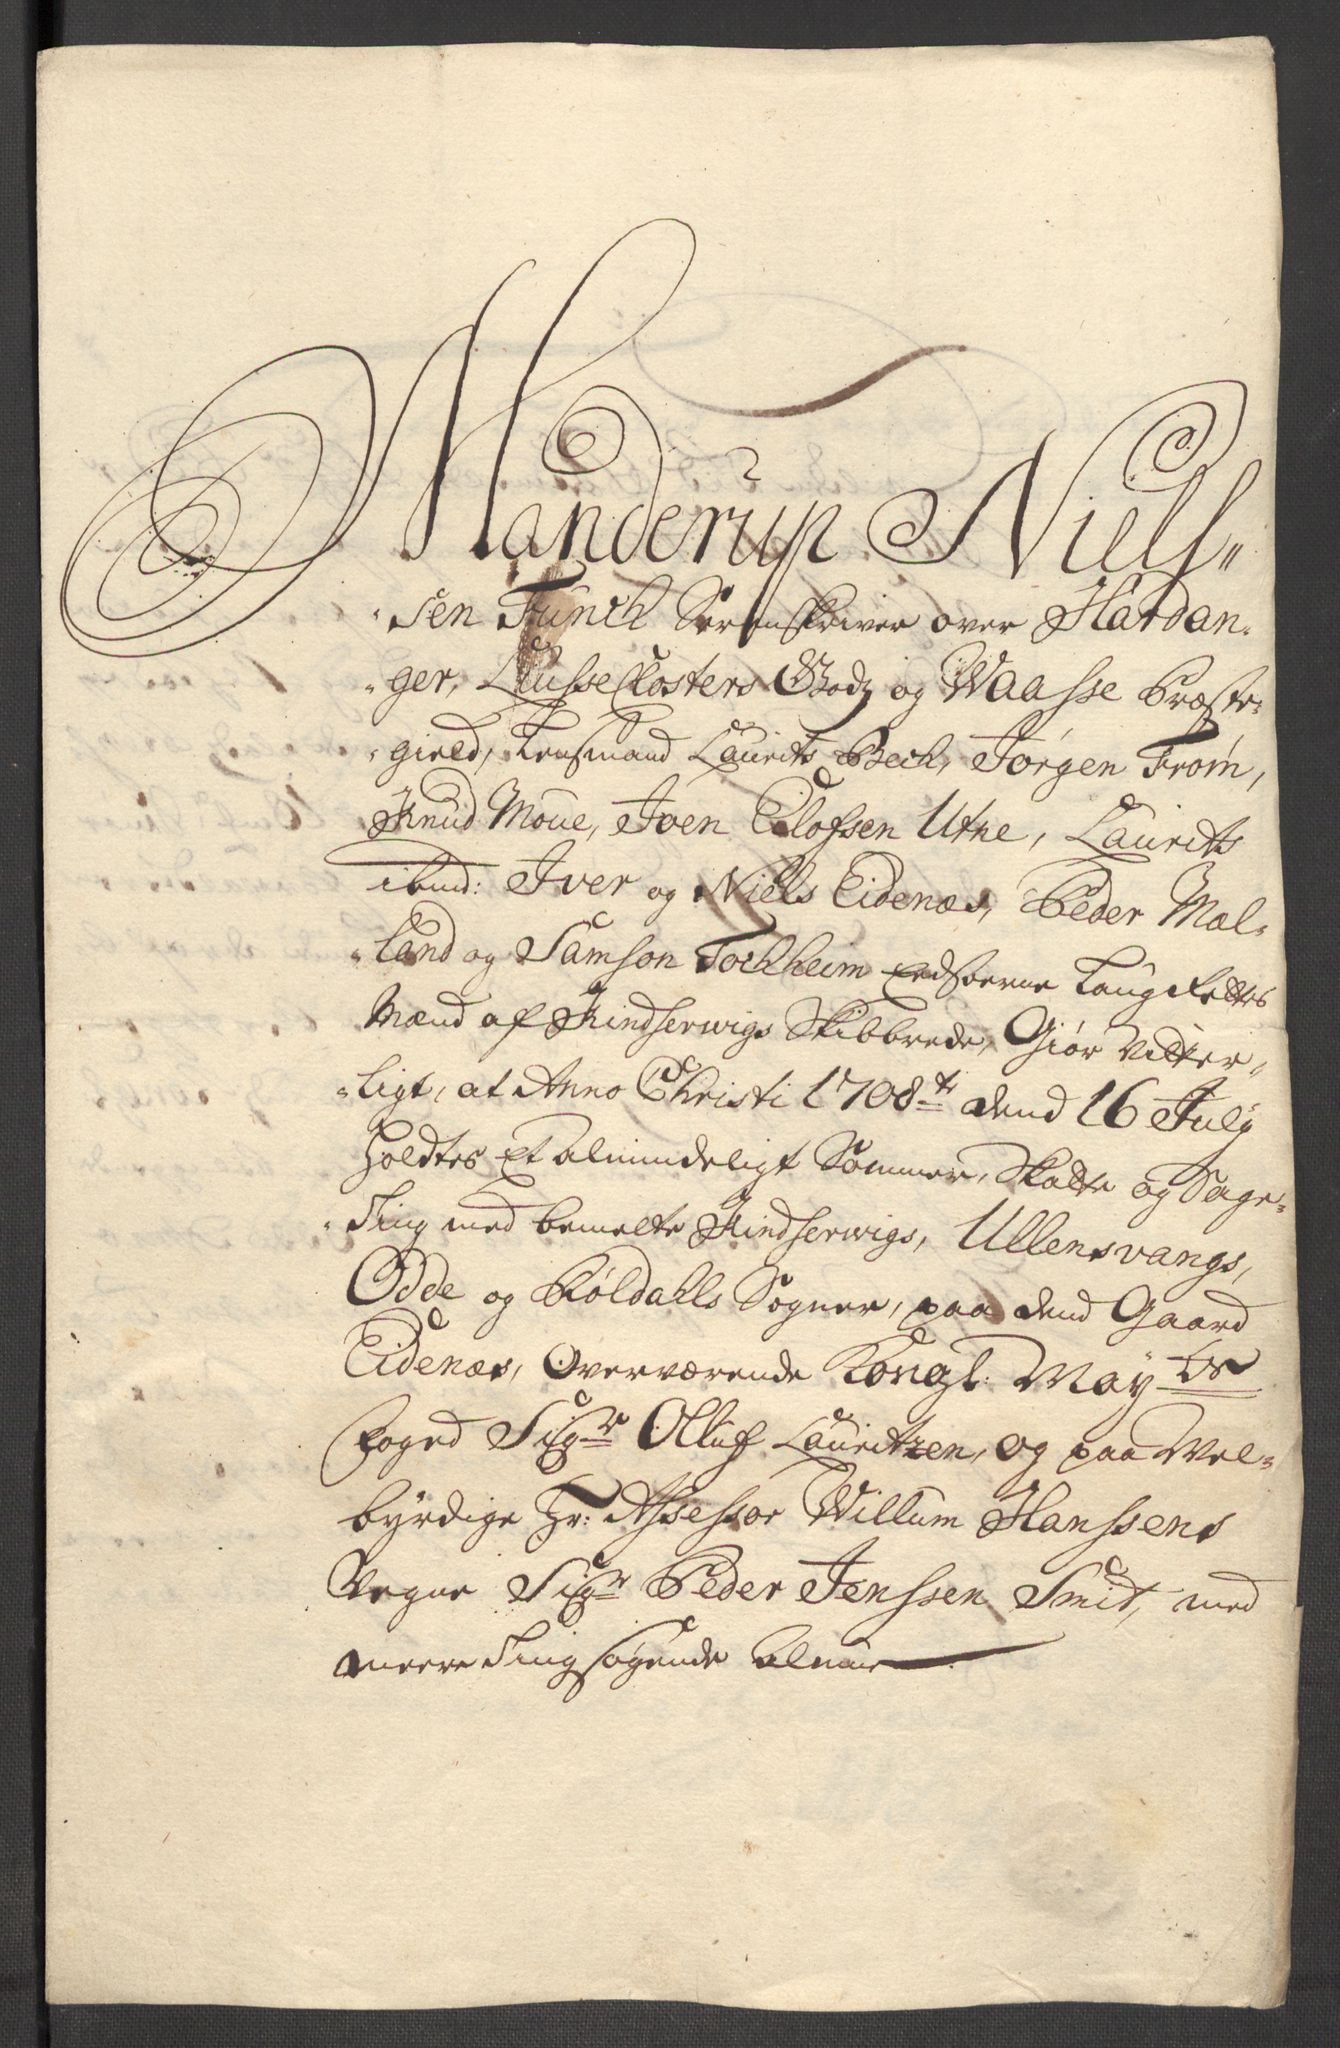 Manderup Niels-
-sen Funch Sorenskriver over Hardan-
-ger, Lüsse Closters Godz og Waasse Præste-
-gield, Lensmand Laurits Bech, Jørgen From,
Knud Moue, Iven Olofsen Utne, Laurits
ibid: Iver og Niels Eidenæs, Peder Mal-
-land og Samson Tochheim Eedsoerne Laug Rettes
Mænd af Kindserwigs Skibbrede, Giør Vitter-
-ligt, at Anno Christi 1708te dend 16 July
holdtes Et almindeligt Sommer, Skatte og Sage-
-ting med bemelte Kindserwigs, Ullensvangs,
Odde og Røldahls Sogner, paa dend Gaard
Eidenæs, Overværende Kongl: Mayts
foged Sigr Olluf Lauritzen, og paa Vel-
byrdige Hr: Assessor Willum Hanssens
Vegne Sigr Peder Jenssen Smit, med
meere Ting søgende Almue